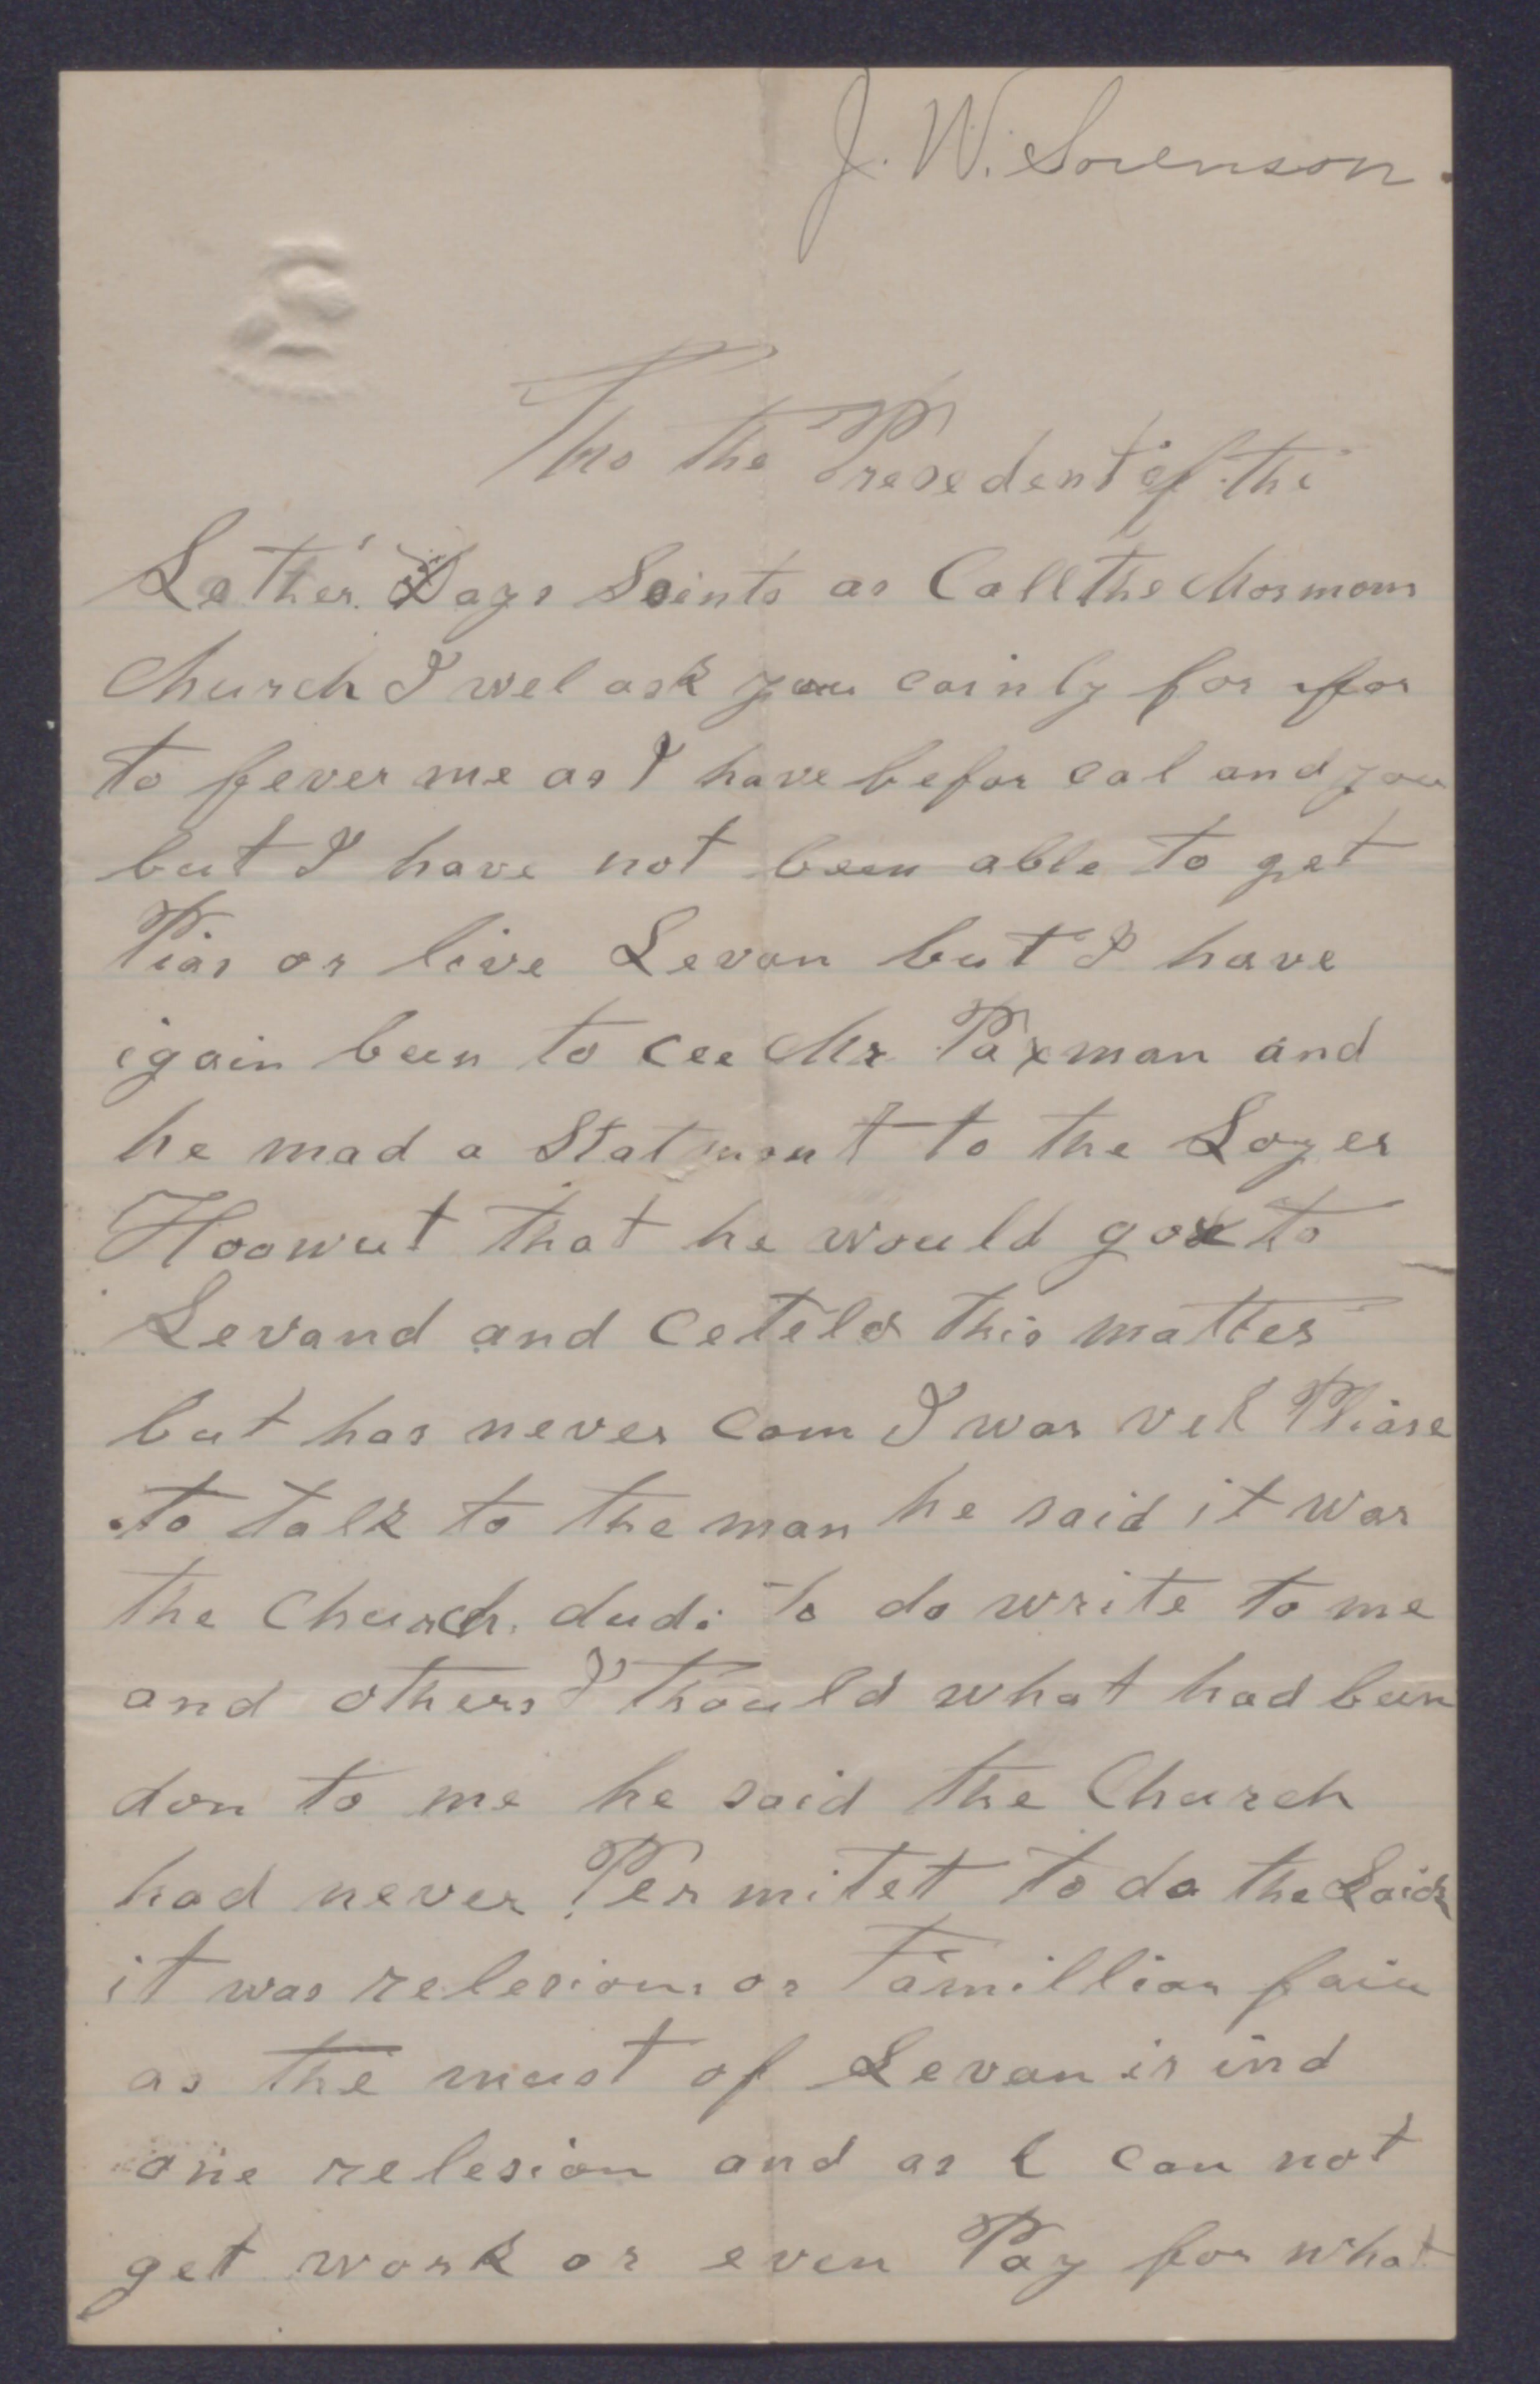 J. W. Sorenson.
Tho the Presedent of the
Lather's Days Seints as Call the Mormons
Church I wel ask you cainly for for
to fever me as I have befor cal and you
but I have not been able to get
Pias or live Levan but I have
igain been to cee Mr Paxman and
he mad a Statment to the Loyer
Hoowut that he would go to
Levand and ceteld this matter
but has never com I was vel Pliase
to talk to the man he said it was
the Church dudi to do write to me
and others I thould what had been
don to me he said the Church
had never Permitet to do the Laick
it was relesions or Familliar fain
as the must of Levan is ind
one relesion and as I can not
get work or even Pay for what